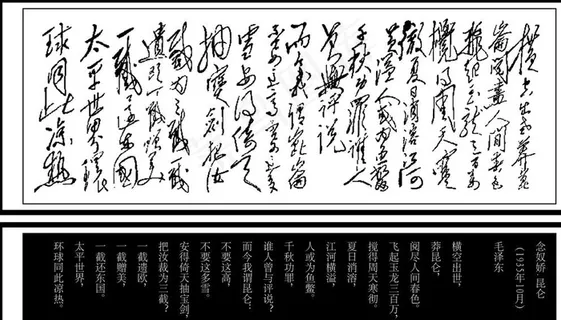 横空出世莽昆
崙阅盡人间春色
飛起玉龍三百萬
攪得周天寒
徹夏日消溶江河
横溢人或為魚鱉
千秋功罪誰人
曾與評说
而今我謂崑崙
不要這高不要這多
雪安得倚天
抽寶劍把汝
裁为三截一截
遺欧一截贈美
一截还東國
太平世界環
球同此凉熱
念奴娇·昆仑
(1935年10月)
毛泽东
横空出世，
莽昆仑，
阅尽人间春色。
飞起玉龙三百万，
搅得周天寒彻。
夏日消溶，
江河横溢，
人或为鱼鳖。
千秋功罪，
谁人曾与评说？
而今我谓昆仑：
不要这高，
不要这多雪。
安得倚天抽宝剑，
把汝裁为三截？
一截遗欧，
一截赠美，
一截还东国。
太平世界，
环球同此凉热。